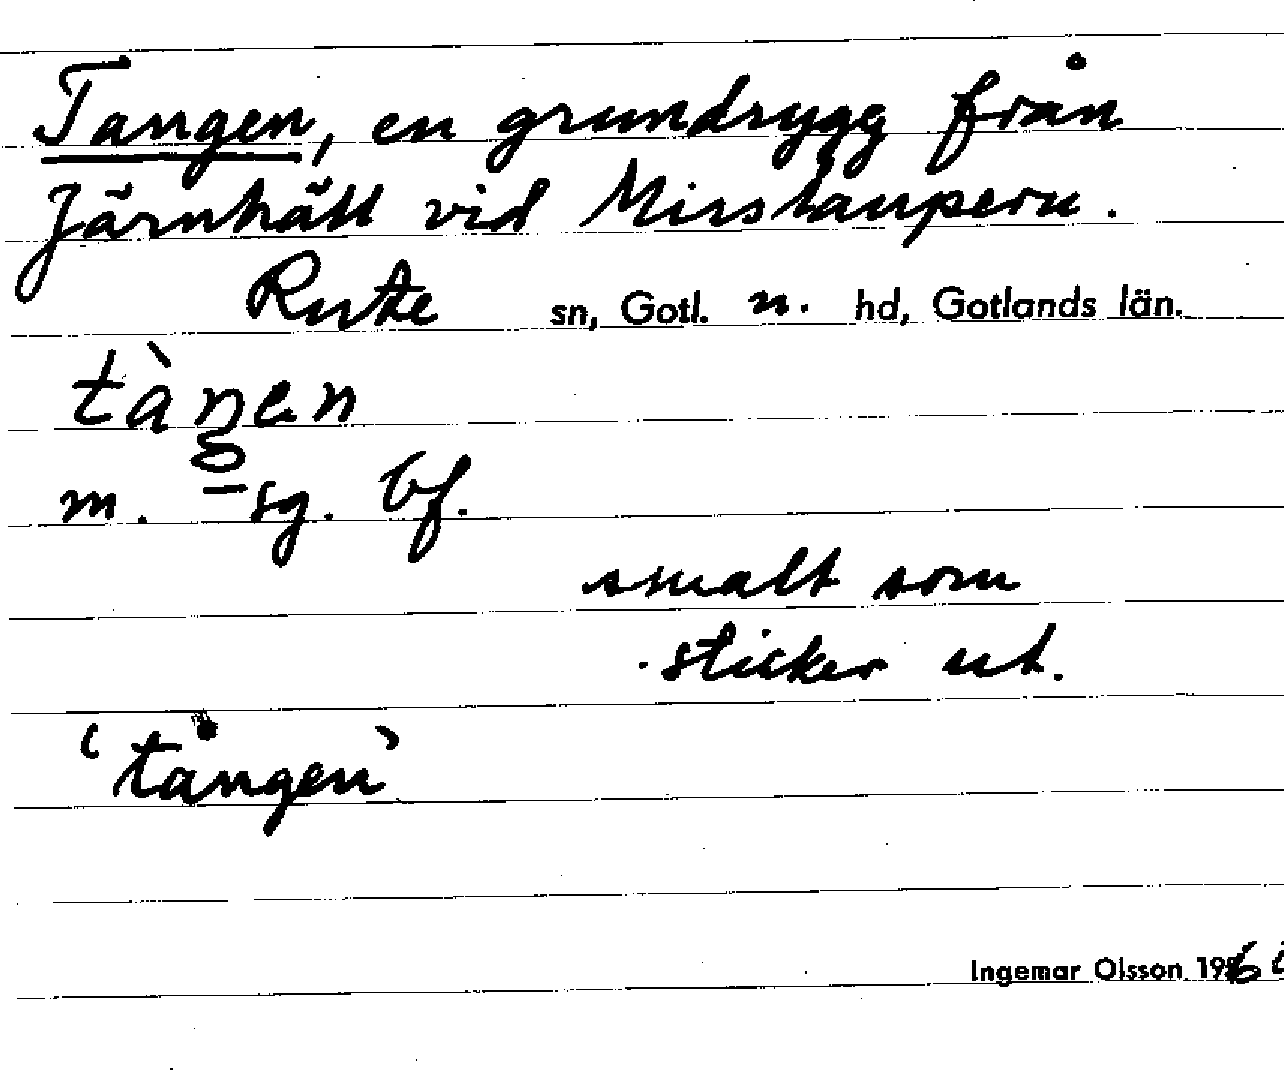 Tangen, en grundrygg från
Järnhäll vid Misslauperu.
Rute sn, Gotl. n. hd, Gotlands län.
tàŋen
m. sg. bf.
smalt som
sticker ut.
'tången'
Ingemar Olsson 196